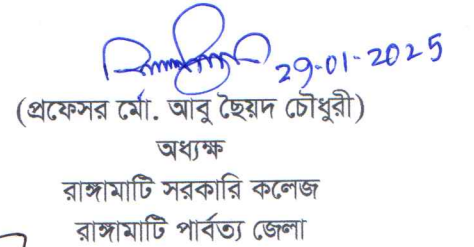 29-01-2025
(প্রফেসর মো. আবু ছৈয়দ চৌধুরী)
অধ্যক্ষ
রাঙ্গামাটি সরকারি কলেজ
রাঙ্গামাটি পার্বত্য জেলা